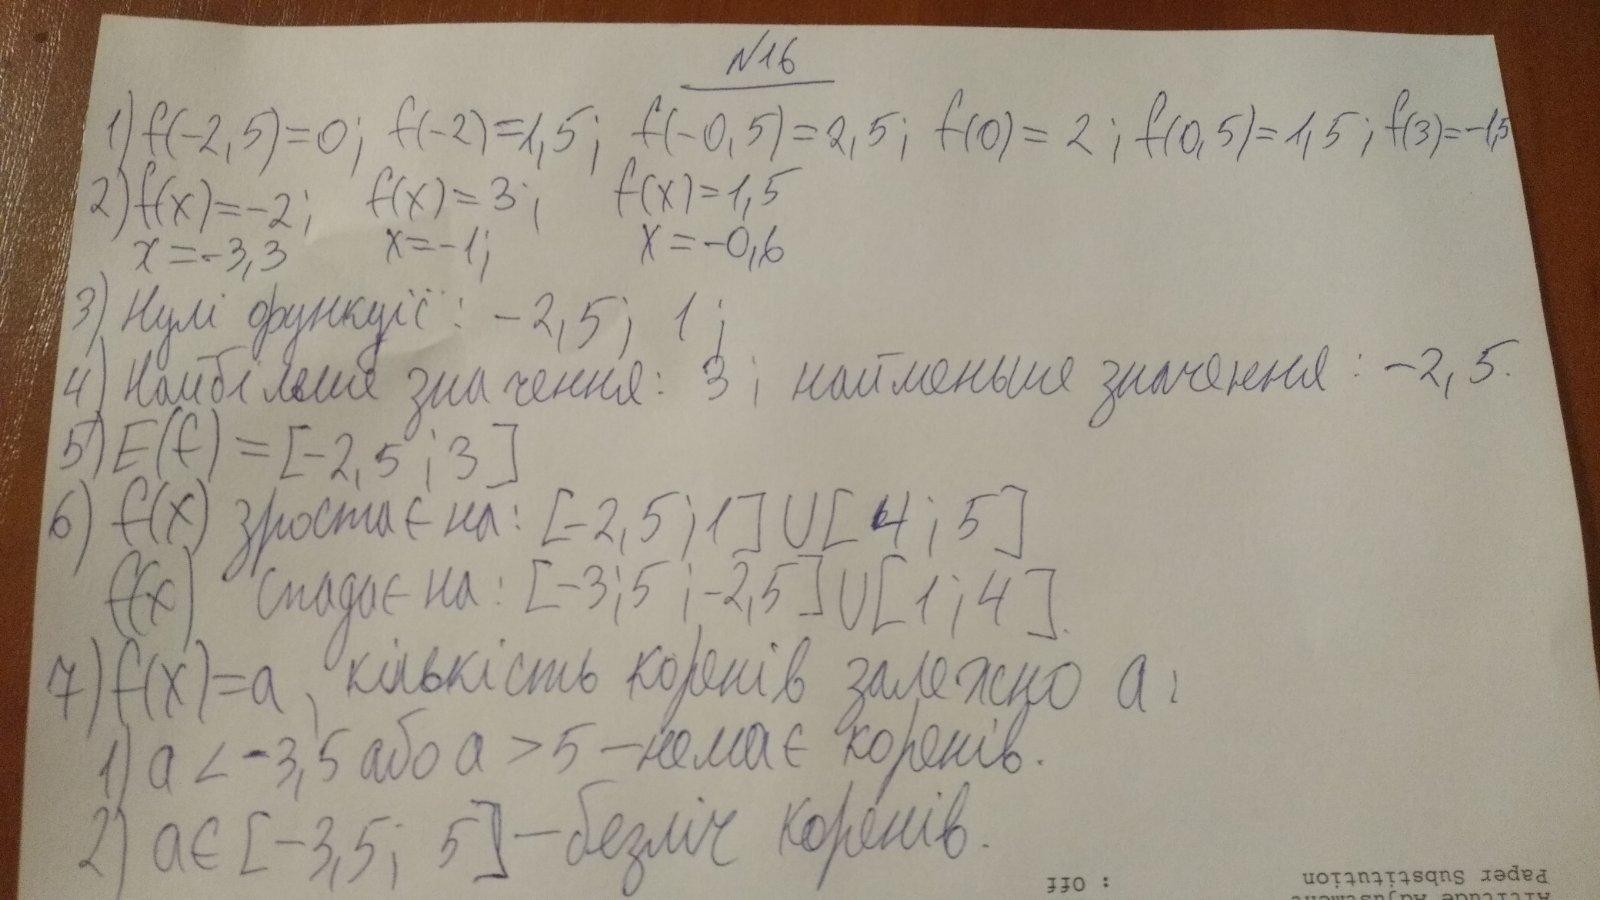 №16
1) f(-2,5)=0; f(-2)=1,5; f(-0,5)=2,5; f(0)=2; f(0,5)=1,5; f(3)=-1,5
2) f(x)=-2; f(x)=3; f(x)=1,5
x=-3,3 x=-1; x=-0,6
3) Нулі функції: -2,5; 1;
4) Найбільше значення: 3; найменьше значення: -2,5.
5) E(f)=[-2,5;3]
6) f(x) зростає на: [-2,5;1]U[4;5]
f(x) спадає на: [-3;5;-2,5]U[1;4].
7) f(x)=a, кількість коренів залежно a:
1) a<-3,5 або a>5 – немає коренів.
2) aЄ[-3,5; 5] – безліч коренів.
: Off
Paper Substitution
Altitude Adjustment